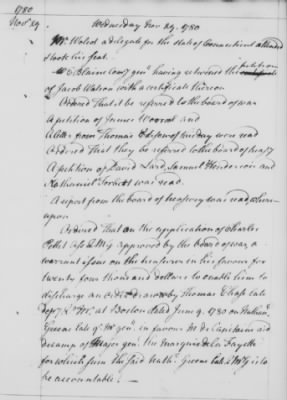 1780
Nov 29.
Wednesday Nov 29. 1780
Mr. Wolcot a delegate for the state of Connecticut attended
& took his seat.
Mr. E. Blaine Comy genl having returned the petition
of Jacob Watson with a certificate thereon
Ordered That it be referred to the board of war
A petition of James Worral and
A letter from Thomas of this day were read
Ordered That they be referred to the board of treasy
A petition of David Lard, Samuel Henderson and
Nathaniel was read.
A report from the board of treasury was read whereupon
Ordered That on the application of Charles
Pettit approved by the board of war, a
warrant issue on the treasurer in his favour for
twenty four thousand dollars to enable him to
discharge an order drawn by Thomas Chase late
Depy Q. Mr. at Boston dated June 9. 1780 on Nathanl.
Greene late qr. Mr genl. in favour M de Capitaine aid
de camp of Major genl. the Marquis de la Fayette
for which sum the said Nathl. Greene late Q M G is to
be accountable.